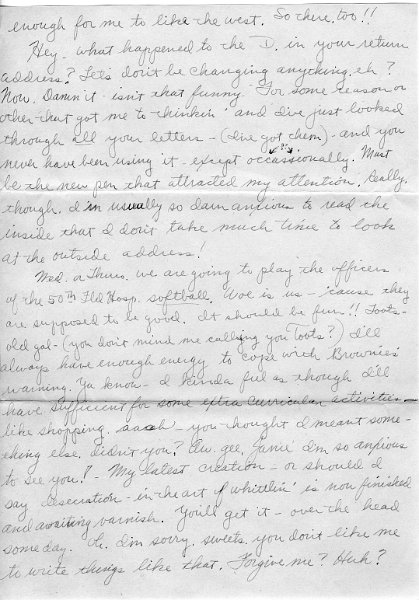 enough for me to like the west. So there, too!!
Hey - what happened to the D. in your return
address? Let's don't be changing anything, eh?
Now. Damn it - isn't that funny. For some reason or
other that got me to thinkin' and I've just looked
through all your letters - (I've got them) - and you
never have been using it - except occassionally. Must
be the new pen that attracted my attention. Really,
though, I'm usually so darn anxious to read the
inside that I don't take much time to look
at the outside address!
Wed. or Thurs. we are going to play the officers
of the 50th Fld Hosp. softball. Woe is us - 'cause they
are supposed to be good. It should be fun!! Toots -
old gal - (you don't mind me calling you Toots?) I'll
always have enough energy to cope with Brownies'
warning. Ya know - I kinda feel as though I'll
have sufficient for some extra curricular activities -
like shopping. aaah - you thought I meant some-
thing else, didn't you? Aw, gee, Janie I'm so anxious
to see you! - My latest creation - or should I
say desecration - in the art of whittlin' is now finished
and awaiting varnish. You'll get it - over the head
some day. Oh, I'm sorry, sweets, you don't like me
to write things like that. Forgive me? Huh?